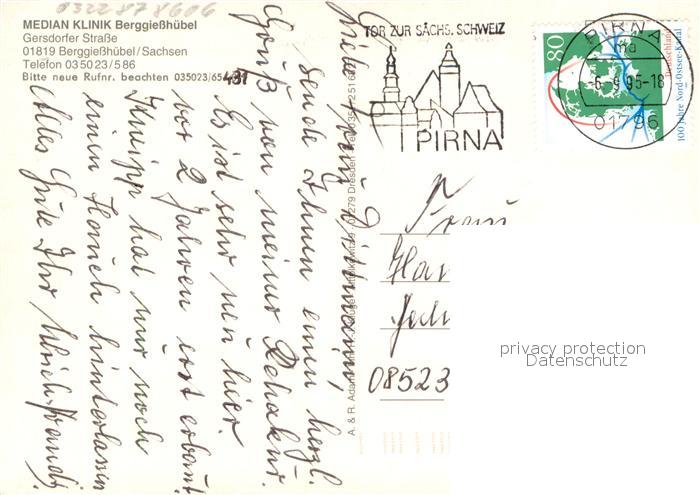 0322878606
MEDIAN KLINIK Berggießhübel
Gersdorfer Straße
01819 Berggießhübel/Sachsen
Telefon 035023/586
Bitte neue Rufnr. beachten 035023/65431
TOR ZUR SÄCHS. SCHWEIZ
PIRNA
PIRNA
ma
-6.-9.95-18
01796
80
Deutschland
100 Jahre Nord-Ostsee-Kanal
Liebe Frau
sende Ihnen einen herzl.
Gruß von meiner Rehakur.
Es ist sehr neu hier.
vor 2 Jahren erst erbaut
Kneipp hat nur noch
einen Hauch hinterlassen
Alles Gute Ihr Ulrich
A. & R. Adam
01279 Dresden
Frau
08523
privacy protection
Datenschutz